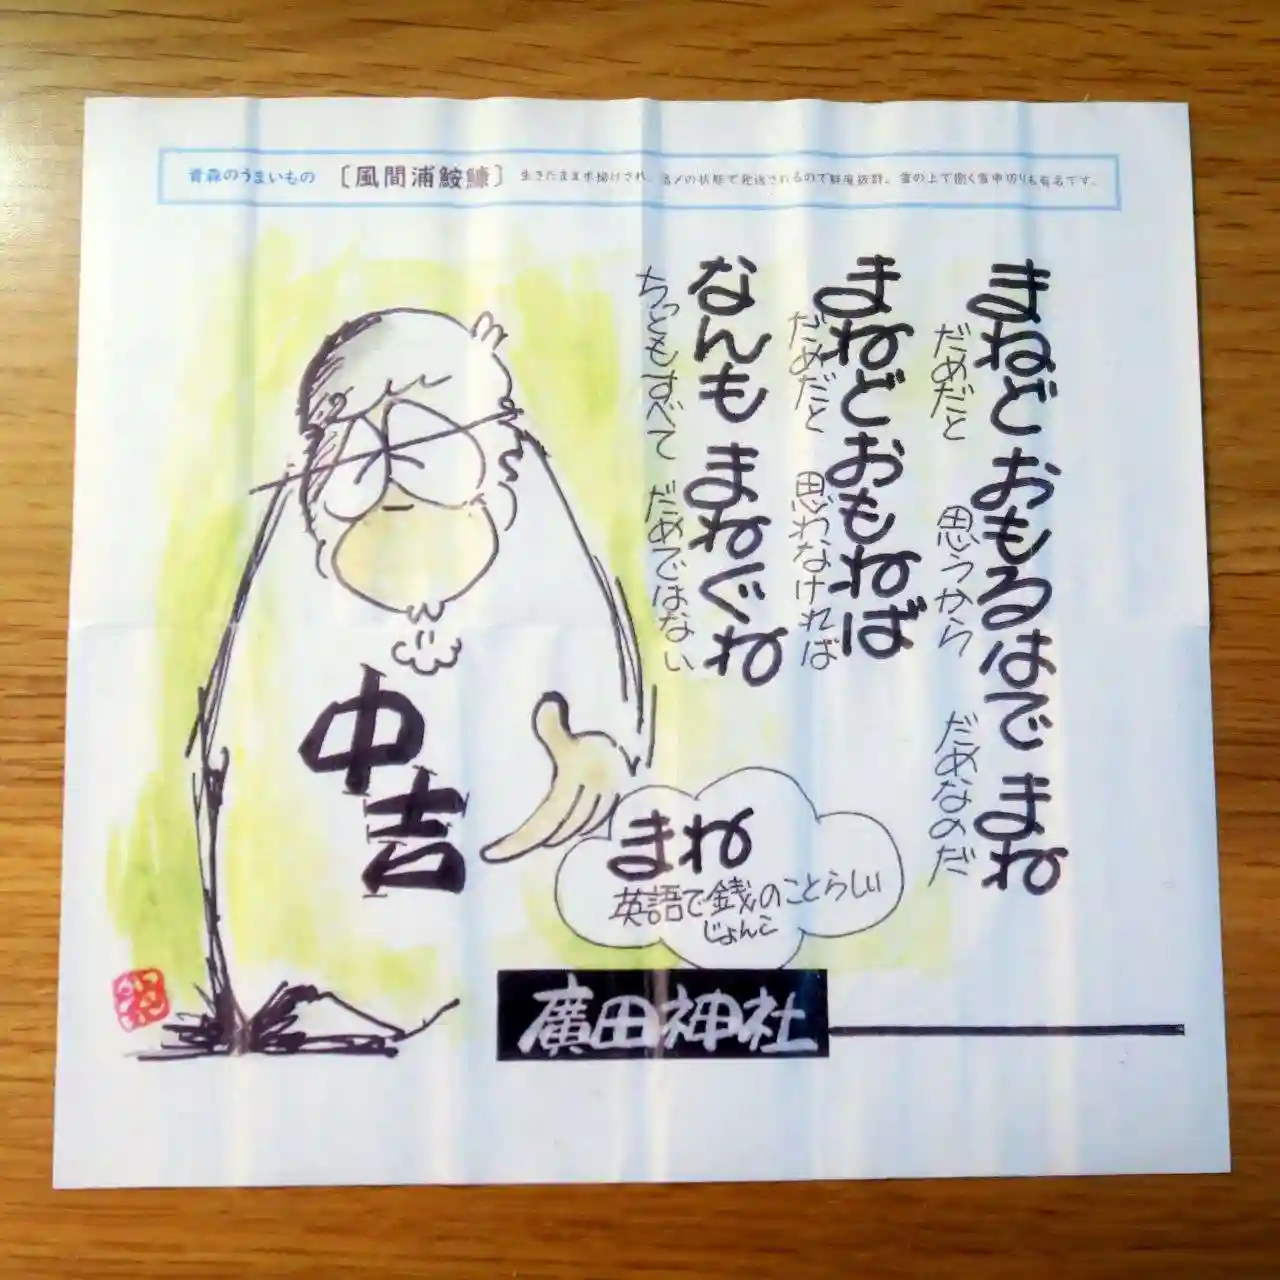 青森のうまいもの 〔風間浦鮟鱇〕 生きたまま水揚げされ、活〆の状態で発送されるので鮮度抜群。雪の上で捌く雪中切りも有名です。
まねど おもるはで まね
だめだと 思うから だめなのだ
まねどおもねば
だめだと 思わなければ
なんも まねぐね
ちっともすべて だめではない
中吉
まね
英語で銭のことらしい
じょんこ
廣田神社